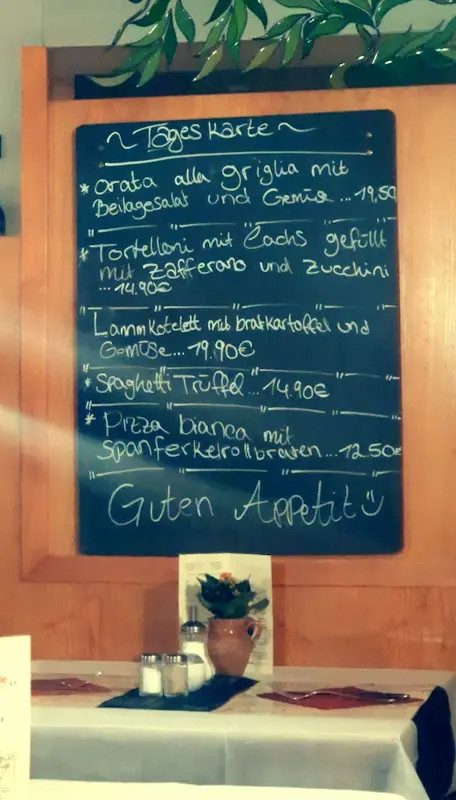 ~ Tageskarte ~
* Orata alla griglia mit
Beilagesalat und Gemüse ... 19,50
* Tortelloni mit Lachs gefüllt
mit Zafferano und Zucchini
... 14.90€
Lammkotelett mit bratkartoffel und
Gemüse... 19.90€
* Spaghetti Trüffel... 14.90€
* Pizza bianca mit
Spanferkelrollbraten... 12.50€
Guten Appetit